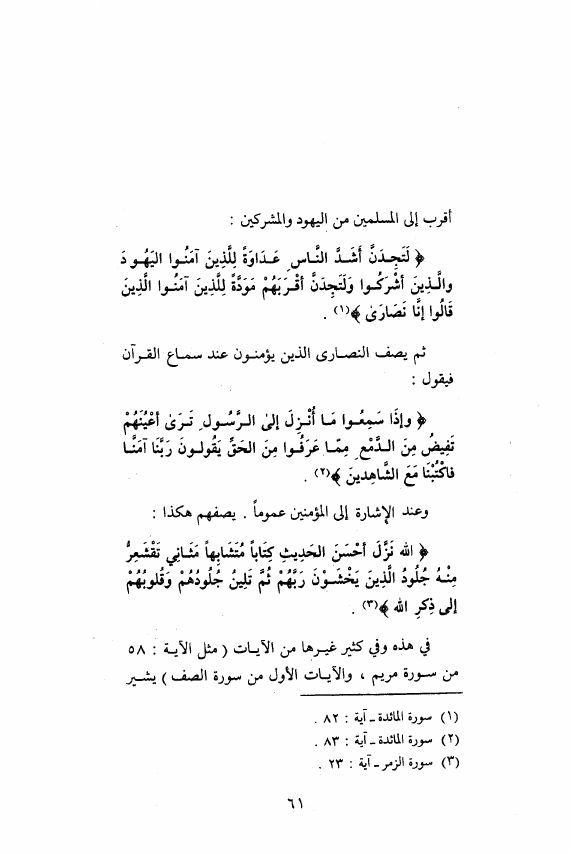 أقرب إلى المسلمين من اليهود والمشركين :
﴿ لَتَجِدَنَّ أَشَدَّ النَّاسِ عَدَاوَةً لِلَّذِينَ آمَنُوا اليَهُودَ
والَّذِينَ أشْرَكُوا وَلَتَجِدَنَّ أقْرَبَهُمْ مَوَدَّةً لِلَّذِينَ آمَنُوا الَّذِينَ
قَالُوا إنَّا نَصَارَىٰ ﴾(١) .
ثم يصف النصارى الذين يؤمنون عند سماع القرآن
فيقول :
﴿ وإذَا سَمِعُوا مَا أُنْزِلَ إلىٰ الرَّسُولِ تَرَىٰ أعْيُنَهُمْ
تَفِيضُ مِنَ الدَّمْعِ مِمَّا عَرَفُوا مِنَ الحَقِّ يَقُولُونَ رَبَّنَا آمَنَّا
فاكْتُبْنَا مَعَ الشَّاهِدينَ ﴾(٢) .
وعند الإشارة إلى المؤمنين عموماً . يصفهم هكذا :
﴿ الله نَزَّلَ أحْسَنَ الحَديثِ كِتَاباً مُتَشَابِهاً مَثَانِي تَقْشَعِرُّ
مِنْهُ جُلُودُ الَّذِينَ يَخْشَوْنَ رَبَّهُمْ ثُمَّ تَلِينُ جُلُودُهُمْ وَقُلُوبُهُمْ
إلى ذِكرِ الله ﴾(٣) .
في هذه وفي كثير غيرها من الآيات ( مثل الآية : ٥٨
من سورة مريم ، والآيات الأول من سورة الصف ) يشير
(١) سورة المائدة ـ آية : ٨٢ .
(٢) سورة المائدة ـ آية : ٨٣ .
(٣) سورة الزمر ـ آية : ٢٣ .
٦١